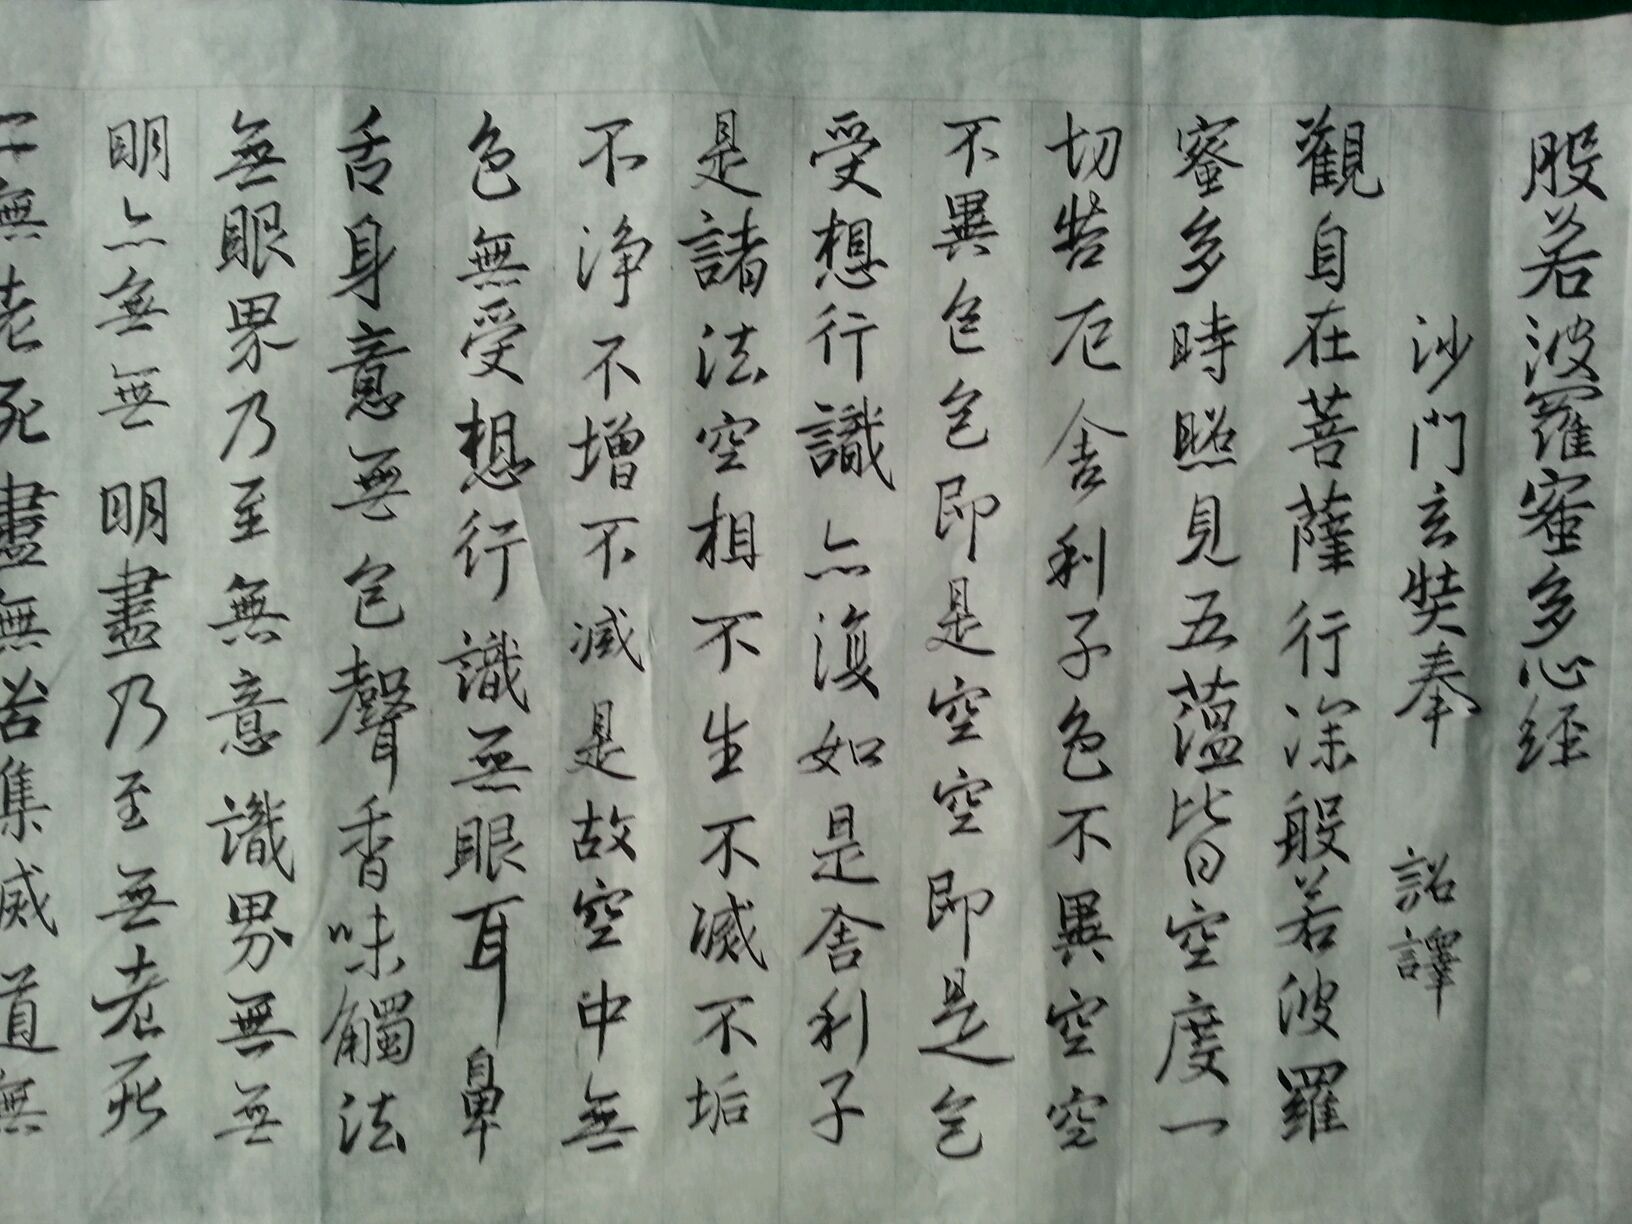 般若波羅蜜多心経
沙門玄奘奉 詔譯
觀自在菩薩行深般若波羅
蜜多時照見五蘊皆空度一
切苦厄舎利子色不異空空
不異色色即是空空即是色
受想行識亦復如是舎利子
是諸法空相不生不滅不垢
不浄不增不減是故空中無
色無受想行識無眼耳鼻
舌身意無色聲香味觸法
無眼界乃至無意識界無無
明亦無無明盡乃至無老死
亦無老死盡無苦集滅道無